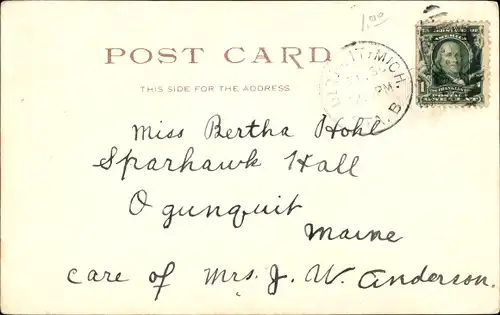 1.00
POST CARD
THIS SIDE FOR THE ADDRESS.
MICH.
PM
Miss Bertha Hohl
Sparhawk Hall
Ogunquit
Maine
care of Mrs. J. W. Anderson.